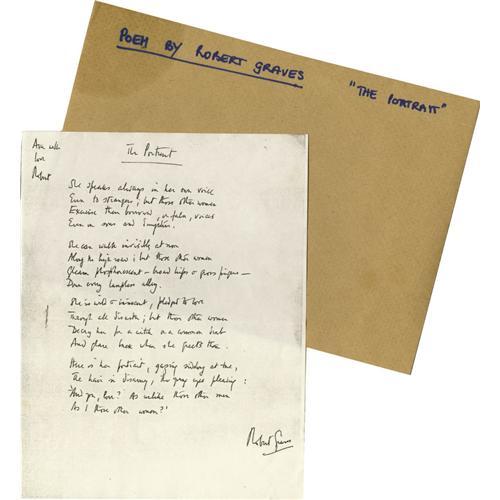 POEM BY ROBERT GRAVES
"THE PORTRAIT"
Ava with
love
Robert
The Portrait
She speaks always in her own voice
Even to strangers; but those other women
Exercise their borrowed, or false, voices
Even on sons and daughters.
She can walk invisibly at noon
Along the high road; but those other women
Gleam phosphorescent – broad hips & gross fingers –
Down every lampless alley.
She is wild & innocent, pledged to love
Through all disaster; but those other women
Decry her for a witch or a common drab
And glare back when she greets them.
Here is her portrait, gazing sidelong at me,
The hair in disarray, the young eyes pleading:
'And you, love? As unlike those other men
As I those other women?'
Robert Graves